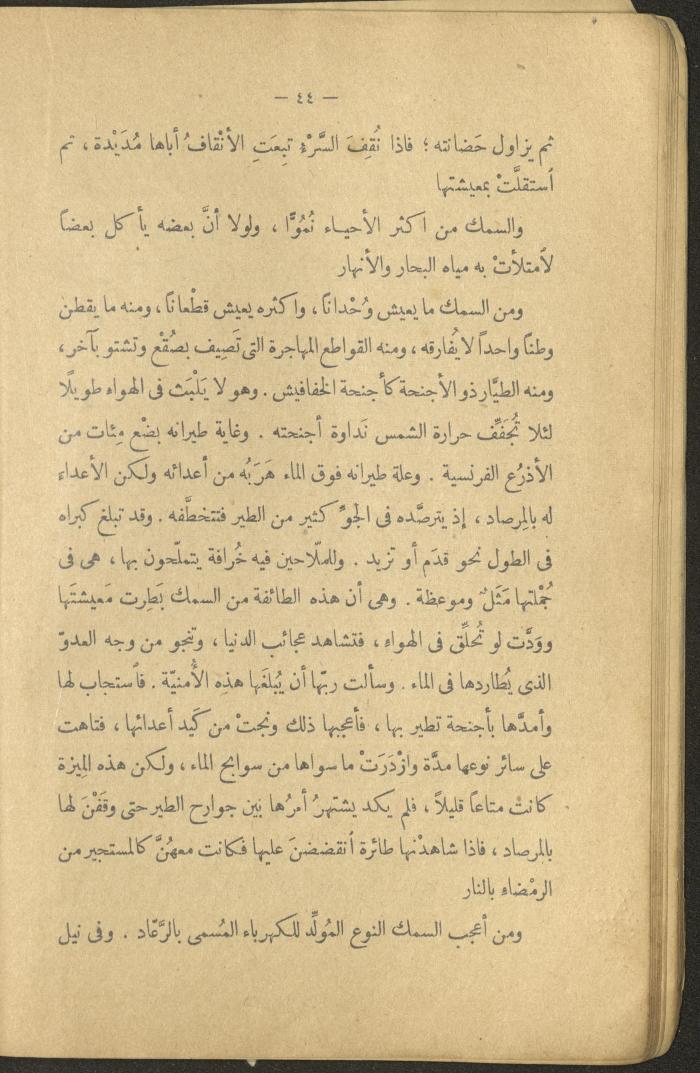 — ٤٤ —
ثم يزاول حَضانته؛ فاذا نُقِفَ السَّرْءُ تبِعَتِ الأنْقافُ أباها مُدَيْدة، ثم
ٱستقلَّتْ بمعيشتها
والسمك من اكثر الأحياء نُمُوًّا، ولولا أنَّ بعضه يأكل بعضاً
لاَمتلأتْ به مياه البحار والأنهار
ومن السمك ما يعيش وُحْداناً، واكثره يعيش قطْعاناً، ومنه ما يقطن
وطناً واحداً لا يُفارقه، ومنه القواطع المهاجرة التى تَصِيف بصُقْع وتشتو بآخر،
ومنه الطيَّار ذو الأجنحة كأجنحة الخفافيش. وهو لا يَلْبَث فى الهواء طويلًا
لئلا تُجَفِّف حرارة الشمس نَداوة أجنحته. وغاية طيرانه بضْع مِئات من
الأذرُع الفرنسية. وعلة طيرانه فوق الماء هَرَبُه من أعدائه ولكن الأعداء
له بالِمرصاد، إذ يترصَّده فى الجوّ كثير من الطير فتتخطَّفه. وقد تبلغ كبراه
فى الطول نحو قدَم أو تزيد. وللملّاحين فيه خُرافة يتملّحون بها، هى فى
جُمْلتها مَثَلٌ وموعظة. وهى أن هذه الطائفة من السمك بَطِرت مَعيشتَها
وودَّت لو تُحلِّق فى الهواء، فتشاهد عجائب الدنيا، وتنجو من وجه العدوّ
الذى يُطاردها فى الماء. وسألت ربّها أن يُبلغَها هذه الأُمنيّة. فاَستجاب لها
وأمدَّها بأجنحة تطير بها، فأعجبها ذلك ونجتْ من كَيد أعدائها، فتاهت
على سائر نوعها مدَّة وازْدَرَتْ ما سواها من سوابح الماء، ولكن هذه المِيزة
كانتْ متاعاً قليلاً، فلم يكد يشتهرُ أمرُها بين جوارح الطير حتى وقَفْنَ لها
بالمرصاد، فاذا شاهدْنها طائرة اَنقضضنَ عليها فكانت معهُنَّ كالمستجير من
الرمْضاء بالنار
ومن أعجب السمك النوع المُولِّد للكهرباء المُسمى بالرَّعّاد. وفى نيل